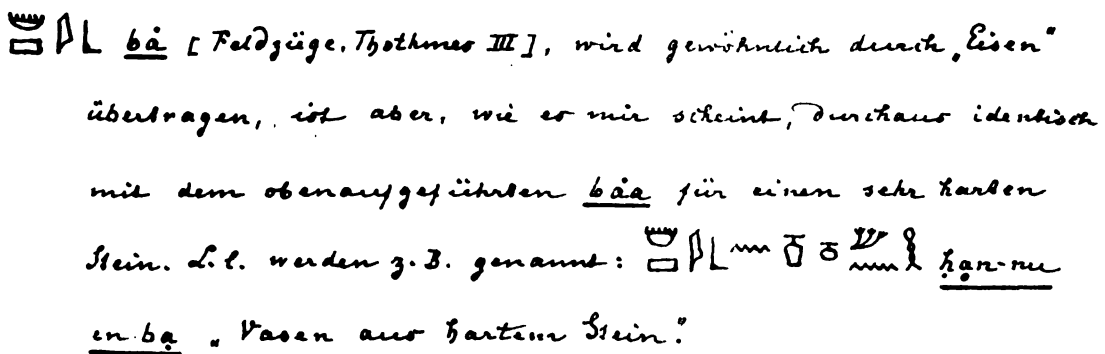 bȧ [Feldzüge, Thothmes III], wird gewöhnlich durch „Eisen“
übertragen, ist aber, wie es mir scheint, durchaus identisch
mit dem obenaufgeführten bȧa für einen sehr harten
Stein. L. l. werden z. B. genannt: ḥạn-nu
en bạ „Vasen aus hartem Stein.“